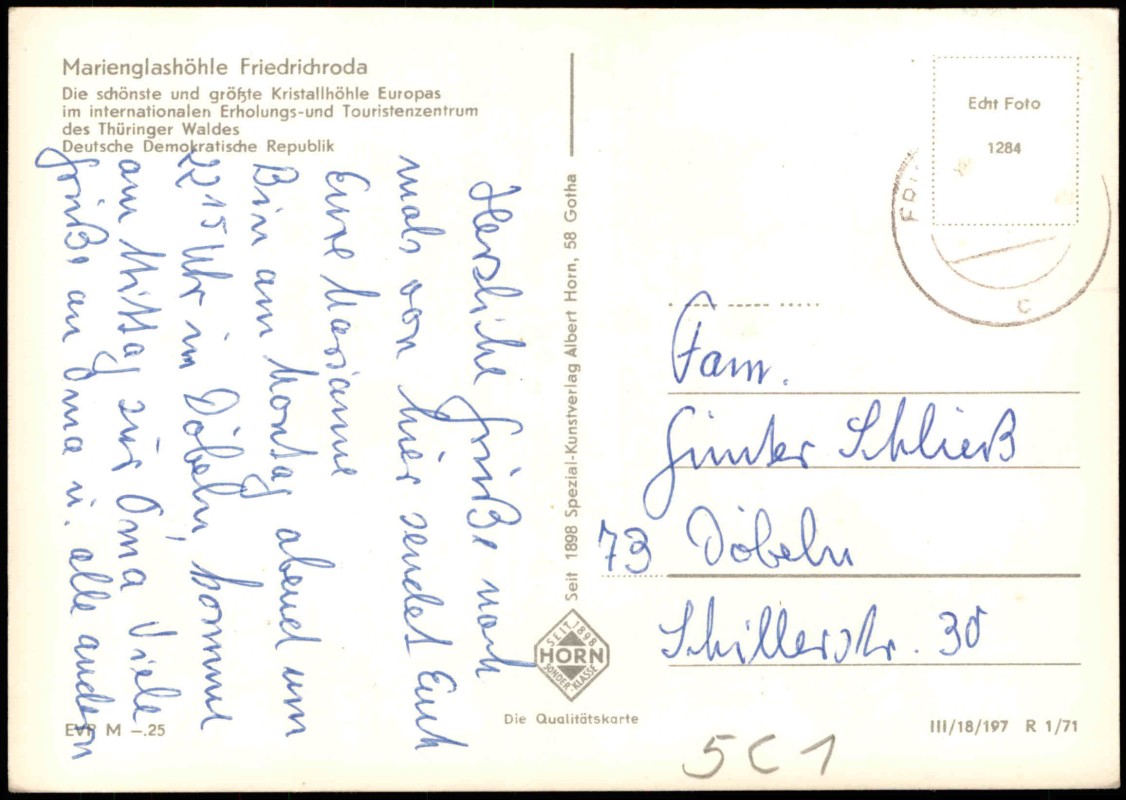 Marienglashöhle Friedrichroda
Die schönste und größte Kristallhöhle Europas
im internationalen Erholungs-und Touristenzentrum
des Thüringer Waldes
Deutsche Demokratische Republik
Herzliche Grüße noch
mals von hier sendet Euch
Eure Marianne
Bin am Montag abend um
22 15 Uhr in Döbeln, komme
am Mittag zur Oma Viele
Grüße an Oma u. alle andern
EVP M –.25
Seit 1898 Spezial-Kunstverlag Albert Horn, 58 Gotha
SEIT 1898
HORN
SONDER-KLASSE
Die Qualitätskarte
Echt Foto
1284
FRI
c
Fam.
Günter Schließ
73 Döbeln
Schillerstr. 30
III/18/197 R 1/71
5C1